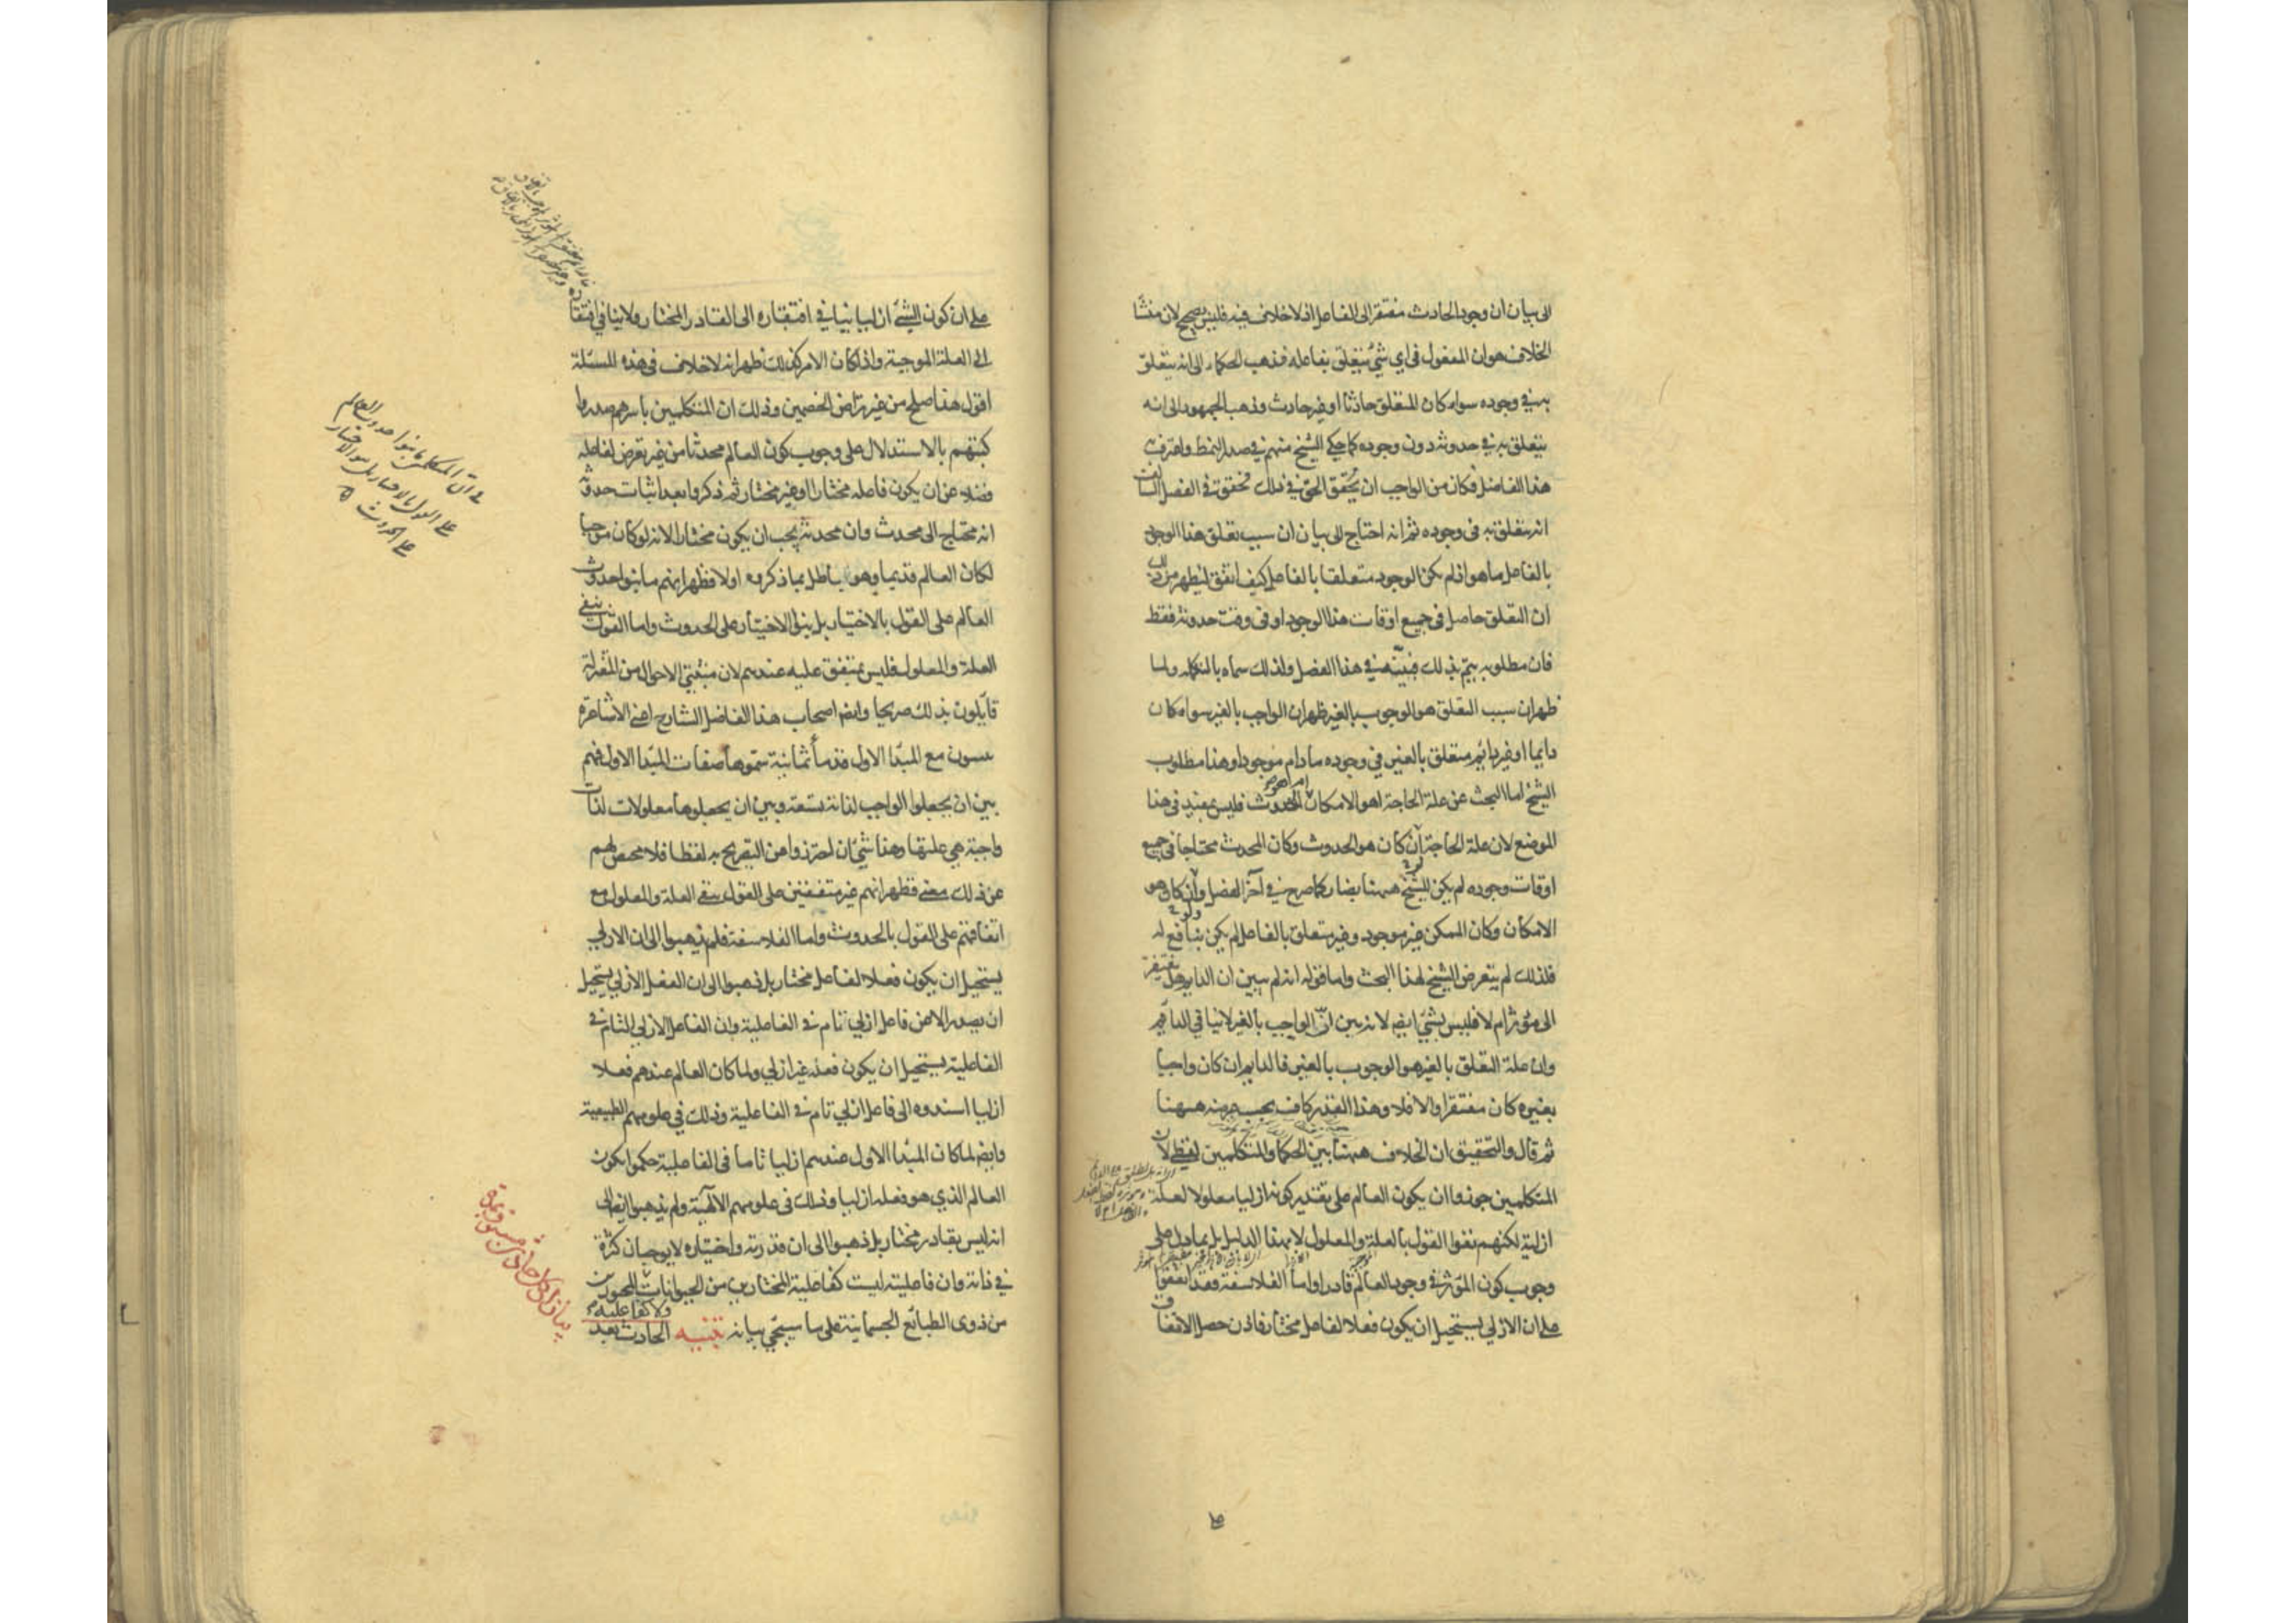 الى بيان ان وجود الحادث مفتقر الى الفاعل اذ لا خلاف فيه فليس بصحيح لان منشأ
الخلاف هو ان المفعول فى اى شئ يتعلق بفاعله فذهب الحكماء الى انه يتعلق
به فى وجوده سواء كان المتعلق حادثا او غير حادث وذهب الجمهور الى انه
يتعلق به فى حدوثه دون وجوده كما حكى الشيخ عنهم فى صدر النمط واعترف به
هذا الفاضل فكان من الواجب ان يحقق الحق فى ذلك فحقق فى الفصل السالف
انه متعلق به فى وجوده ثم انه احتاج الى بيان ان سبب تعلق هذا الوجود
بالفاعل ما هو اذ لم يكن الوجود متعلقا بالفاعل كيف اتفق ليظهر من ذلك
ان التعلق حاصل فى جميع اوقات هذا الوجود او فى وقت حدوثه فقط
فان مطلوبه يتم بذلك فبينه فى هذا الفصل ولذلك سماه بالتكملة ولما
ظهر ان سبب التعلق هو الوجوب بالغير ظهر ان الواجب بالغير سواء كان
دايما او غير دايم متعلق بالغير فى وجوده ما دام موجودا وهذا مطلوب
الشيخ اما البحث عن علة الحاجة اهو الامكان ام هو الحدوث فليس بمفيد فى هذا
الموضع لان علة الحاجة لو كان هو الحدوث وكان المحدث محتاجا فى جميع
اوقات وجوده لم يكن للشيخ ههنا بضار كما صرح فى آخر الفصل ولو كان هو
الامكان وكان الممكن غير موجود وغير متعلق بالفاعل لم يكن بنافع له
فلذلك لم يتعرض الشيخ لهذا البحث واما قوله انه لم يبين ان الدايم هل يفتقر
الى مؤثر ام لا فليس بشئ ايضا لانه بين ان الواجب بالغير لا ينافى الدايم
وان علة التعلق بالغير هو الوجوب بالغير فالدايم ان كان واجبا
بغيره كان مفتقرا والا فلا وهذا القدر كاف بحسب غرضه ههنا
ثم قال والتحقيق ان الخلاف ههنا بين الحكما والمتكلمين لفظى لان
المتكلمين جوزوا ان يكون العالم على تقدير كونه ازليا معلولا لعلة
ازلية لكنهم نفوا القول بالعلة والمعلول لا بهذا الدليل بل بما دل على
وجوب كون المؤثر فى وجود العالم قادرا واما الفلاسفة فقد اتفقوا
على ان الازلى يستحيل ان يكون فعلا لفاعل مختار فاذن حصل الاتفاق
على ان كون الشئ ازليا ينافى افتقاره الى القادر المختار ولا ينافى افتقاره
الى العلة الموجبة واذا كان الامر كذلك ظهر انه لا خلاف فى هذه المسئلة
اقول هذا صلح من غير تراضى الخصمين وذلك ان المتكلمين باسرهم صدروا
كتبهم بالاستدلال على وجوب كون العالم محدثا من غير تعرض لفاعله
فضلا عن ان يكون فاعله مختارا او غير مختار ثم ذكروا بعد اثبات حدوثه
انه محتاج الى محدث وان محدثه يجب ان يكون مختارا لانه لو كان موجبا
لكان العالم قديما وهو باطل بما ذكروه اولا فظهر انهم ما بنوا حدوث
العالم على القول بالاختيار بل بنوا الاختيار على الحدوث واما القول بنفى
العلة والمعلول فليس بمتفق عليه عندهم لان مثبتى الاحوال من المعتزلة
قايلون بذلك صريحا وايضا اصحاب هذا الفاضل الشارح اعنى الاشاعرة
مع المبدأ الاول قدماء ثمانية سموها صفات المبدأ الاول فهم
بين ان يجعلوا الواجب لذاته تسعة وبين ان يجعلوها معلولات لذات
واجبة هى علتها وهذا شئ ان احترزوا من التصريح به لفظا فلا محيص لهم
عن ذلك معنى فظهر انهم غير متفقين على القول بنفى العلة والمعلول مع
اتفاقهم على القول بالحدوث واما الفلاسفة فلم يذهبوا الى ان الازلى
يستحيل ان يكون فعلا لفاعل مختار بل ذهبوا الى ان الفعل الازلى يستحيل
ان يصدر الا من فاعل ازلى تام فى الفاعلية وان الفاعل الازلى التام فى
الفاعلية يستحيل ان يكون فعله غير ازلى ولما كان العالم عندهم فعلا
ازليا اسندوه الى فاعل ازلى تام فى الفاعلية وذلك فى علومهم الطبيعية
وايضا لما كان المبدأ الاول عندهم ازليا تاما فى الفاعلية حكموا بكون
العالم الذى هو فعله ازليا وذلك فى علومهم الالهية ولم يذهبوا ايضا الى
انه ليس بقادر مختار بل ذهبوا الى ان قدرته واختياره لا يوجبان كثرة
فى ذاته وان فاعليته ليست كفاعلية المختارين من الحيوانات ولا كفاعلية المجبورين
من ذوى الطبائع الجسمانية على ما سيجئ بيانه تنبيه الحادث بعد
فى ان المتكلمين ما بنوا حدوث العالم
على القول بالاختيار بل بنوا الاختيار
على الحدوث
بيان ان كل حادث مسبوق بمدة